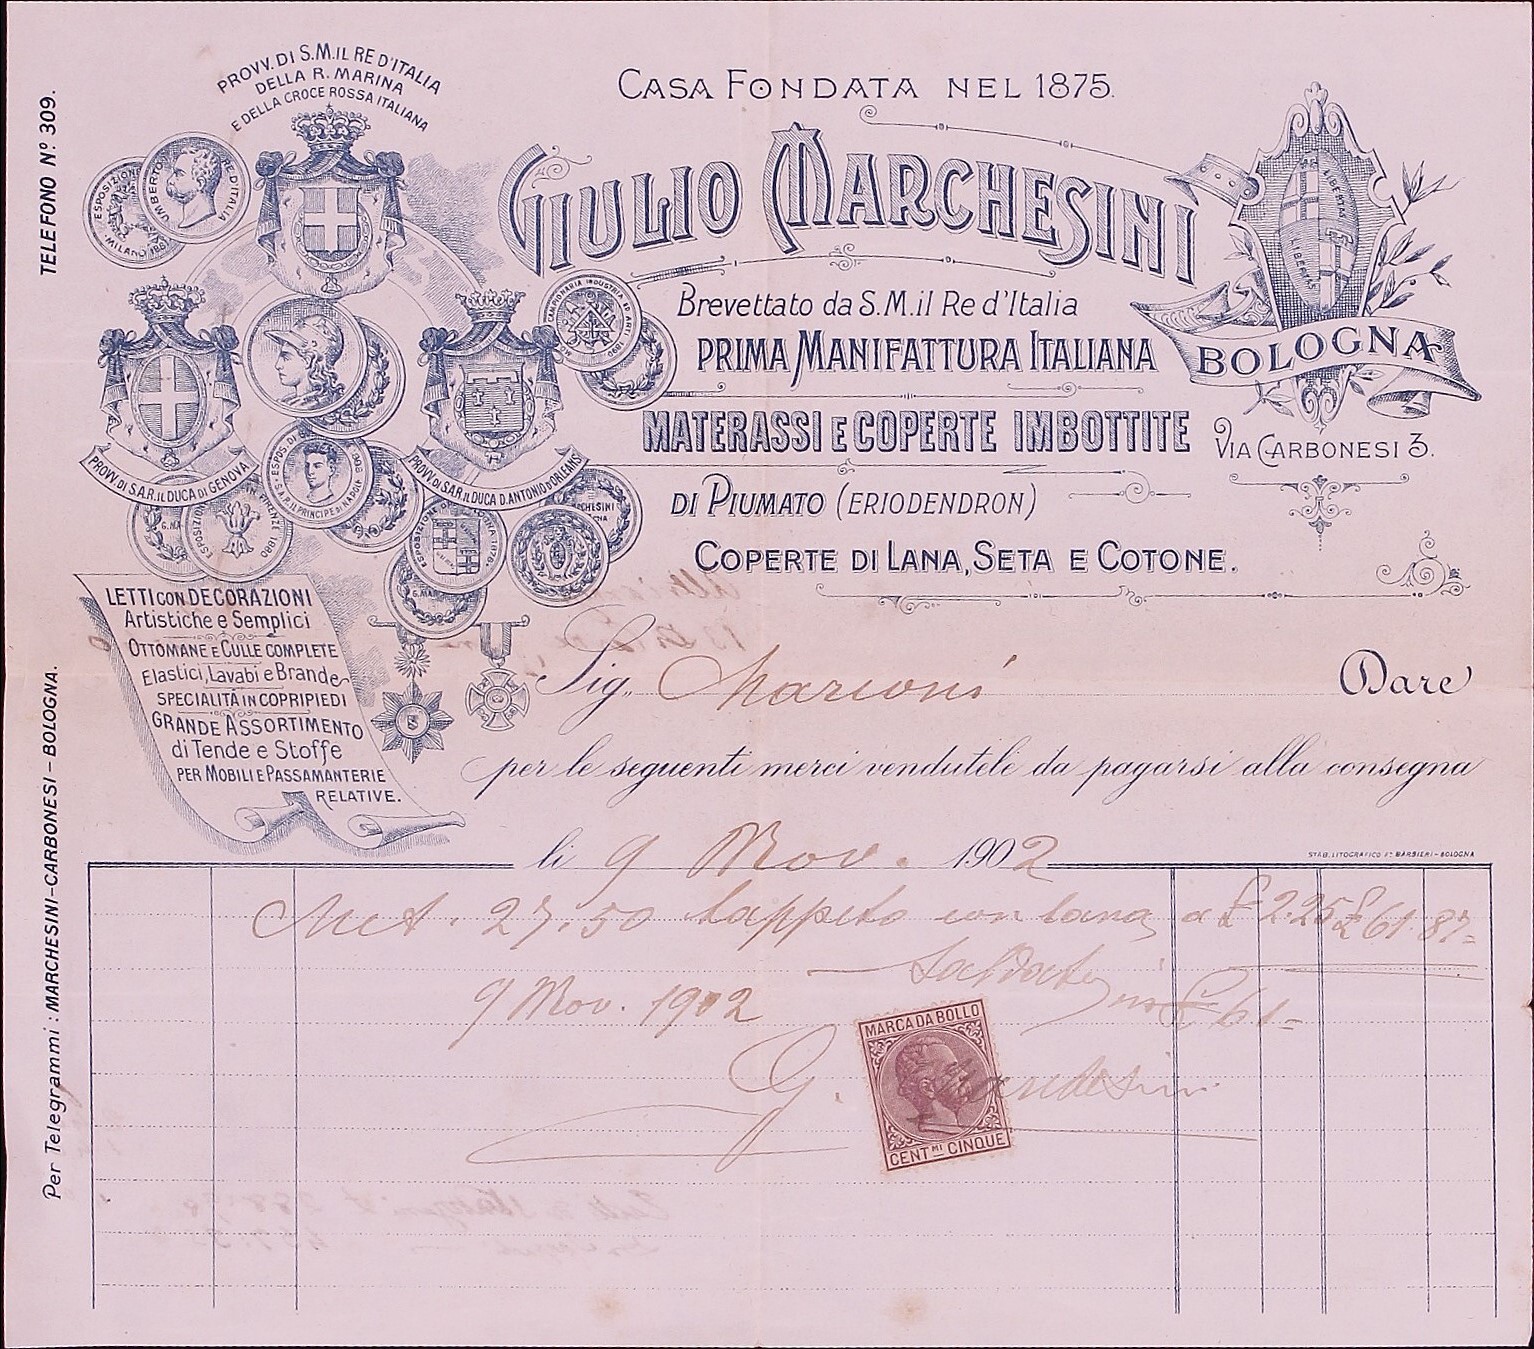 PROVV. DI S.M. IL RE D'ITALIA
DELLA R. MARINA
E DELLA CROCE ROSSA ITALIANA
TELEFONO Nº. 309.
CASA FONDATA NEL 1875.
GIULIO MARCHESINI
Brevettato da S.M. il Re d'Italia
PRIMA MANIFATTURA ITALIANA
MATERASSI E COPERTE IMBOTTITE
DI PIUMATO (ERIODENDRON)
COPERTE DI LANA, SETA E COTONE.
LIBERTAS
LIBERTAS
BOLOGNA
VIA CARBONESI 3.
ESPOSIZIONE
MILANO 1881
UMBERTO I RE D'ITALIA
PROVV. DI S.A.R. IL DUCA DI GENOVA
PROVV. DI S.A.R. IL DUCA D. ANTONIO D'ORLEANS
CAMPIONARIA INDUSTRIA ED ARTI 1890
S.A.R. IL PRINCIPE DI NAPOLI
G. MA
ESPOSIZIONE IN FIRENZE 1880
MARCHESINI
G. MAR
LETTI CON DECORAZIONI
Artistiche e Semplici
OTTOMANE E CULLE COMPLETE
Elastici, Lavabi e Brande
SPECIALITÀ IN COPRIPIEDI
GRANDE ASSORTIMENTO
di Tende e Stoffe
PER MOBILI E PASSAMANTERIE
RELATIVE.
Per Telegrammi: MARCHESINI-CARBONESI - BOLOGNA.
Sig. Marconi Dare
per le seguenti merci vendutele da pagarsi alla consegna
li 9 Nov. 1902
STAB. LITOGRAFICO Fᴸᴸⁱ BARBIERI - BOLOGNA
Met. 27.50 tappeto con lana a £ 2.25 £ 61.87
Saldato in £ 61
9 Nov. 1902
G. Marchesini
MARCA DA BOLLO
CENT.MI CINQUE